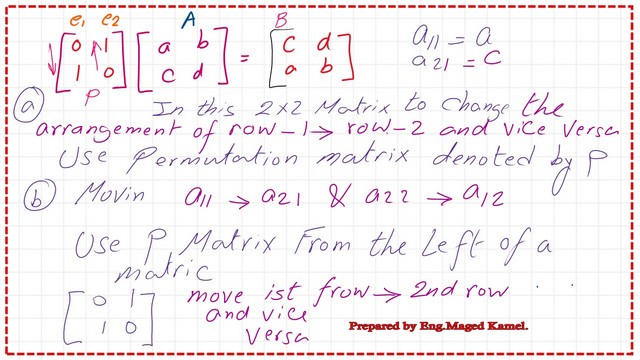 e1 e2 A B
[0 1 1 0] [a b c d] = [c d a b]
P
a11 = a
a21 = c
(a) In this 2x2 Matrix to change the
arrangement of row-1 → row-2 and vice versa
Use Permutation matrix denoted by P
(b) Movin a11 → a21 & a22 → a12
Use P Matrix From the Left of a
matric
[0 1 1 0] move ist frow → 2nd row
and vice
versa
Prepared by Eng.Maged Kamel.